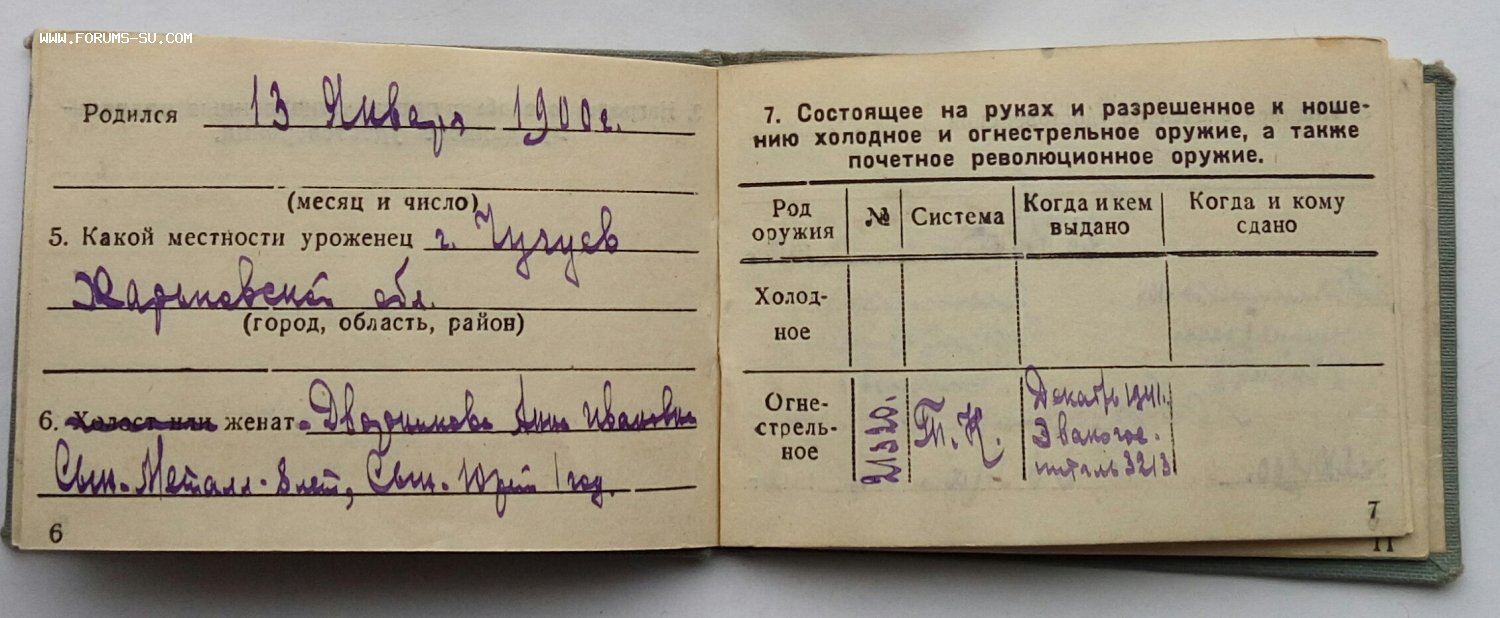 WWW.FORUMS-SU.COM
Родился 13 Января 1900г.
(месяц и число)
5. Какой местности уроженец г. Чугуев
Харьковской обл.
(город, область, район)
6. Холост или женат - Дворникова Анна Ивановна
Сын - Металл - 8 лет, Сын - Юрий 1 год.
6
7. Состоящее на руках и разрешенное к ноше-
нию холодное и огнестрельное оружие, а также
почетное революционное оружие.
Род оружия № Система Когда и кем выдано Когда и кому сдано
Холод-
ное
Огне-
стрель-
ное
21320.
Т.К.
Декабрь 1941г.
Эвакогос-
питаль 3213
7
11